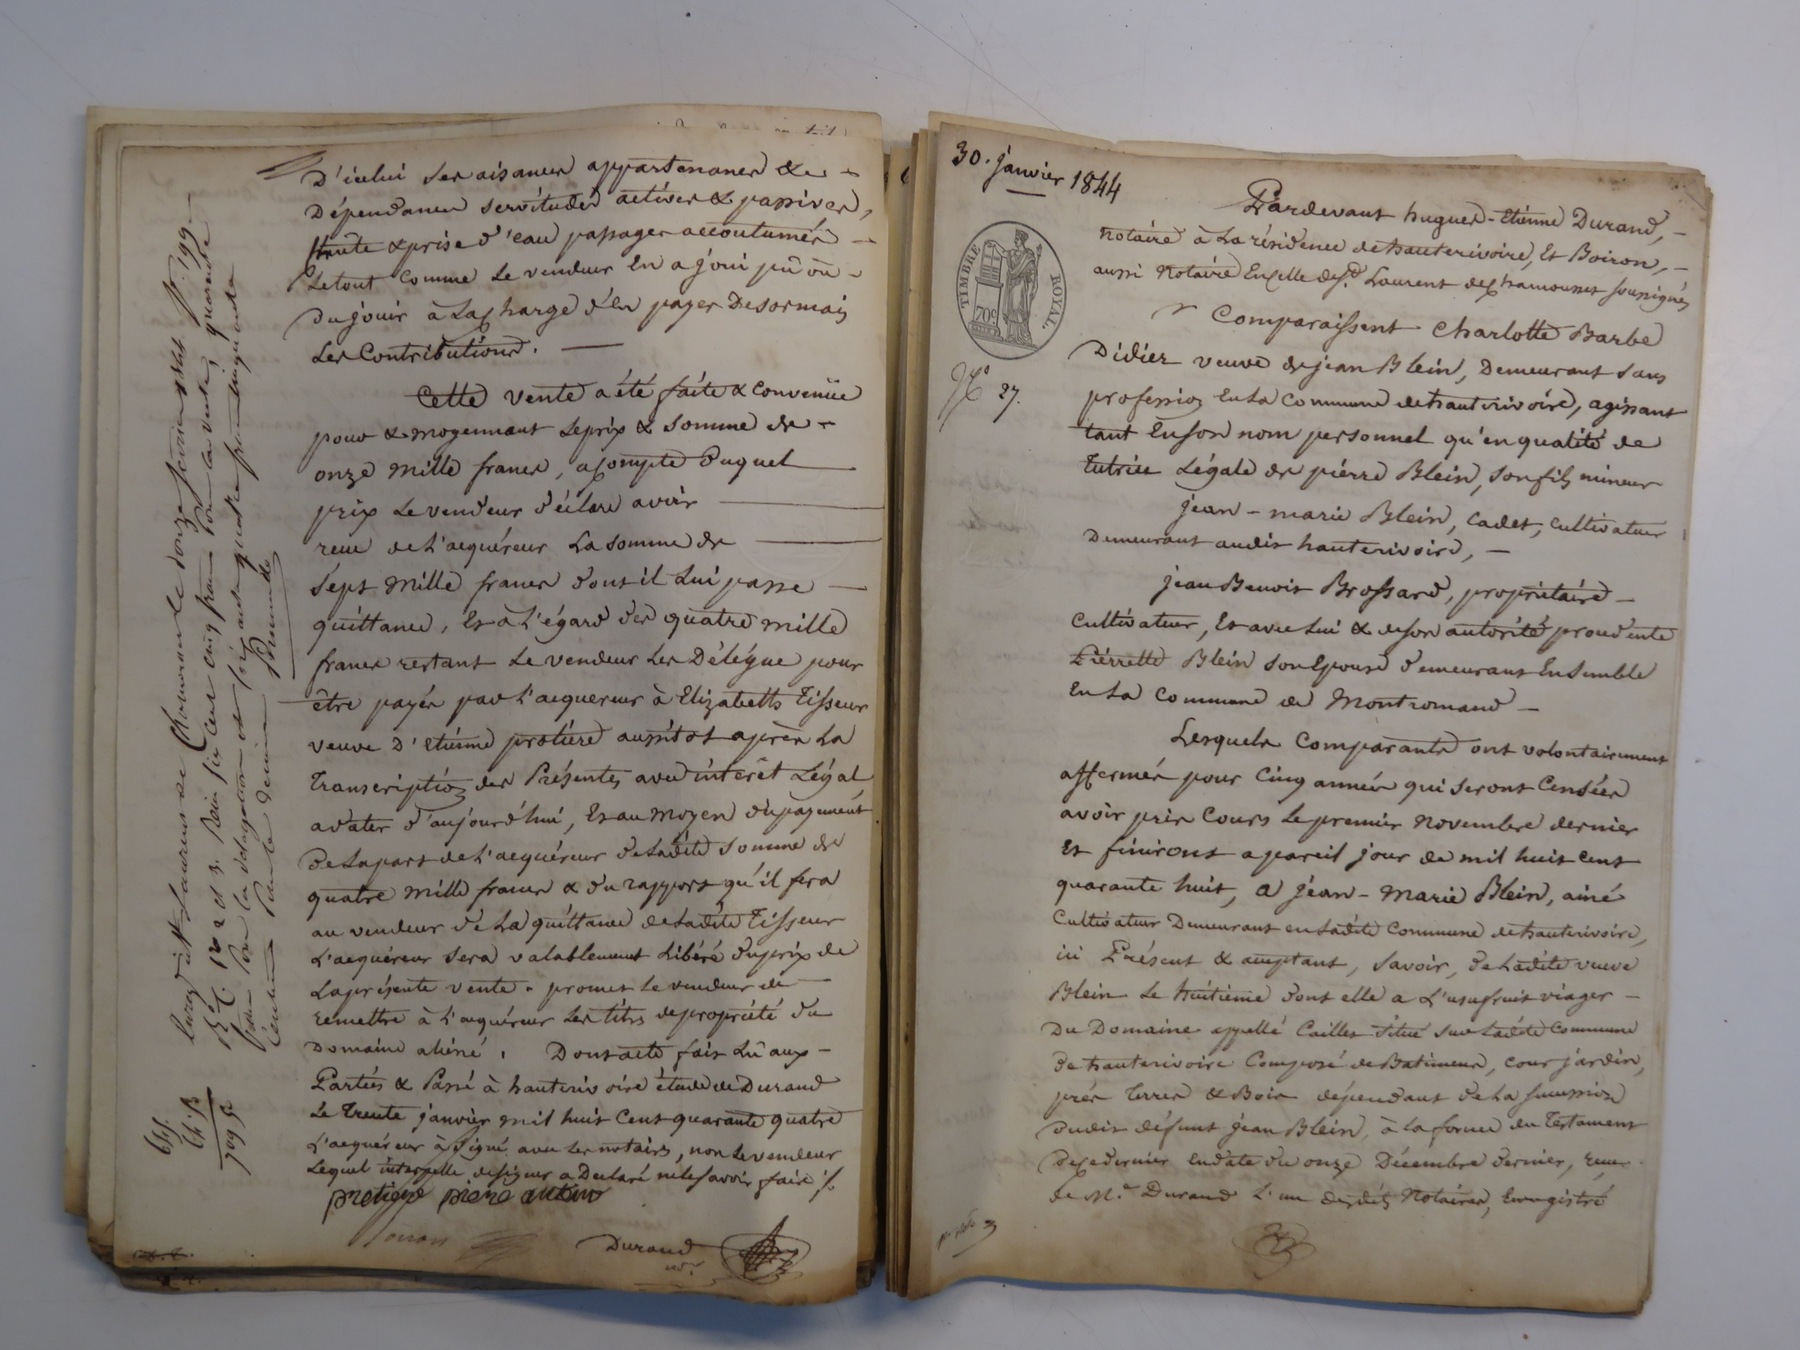 D'icelui ses aisances appartenances &
Dépendances servitudes actives & passives,
fruits & prise d'eau passages accoutumés
Le tout comme le vendeur en a joui pû ou
du jouir à la charge d'en payer Desormais
Les Contributions.
Cette vente a été faite & convenüe
pour & moyennant le prix & somme de
onze mille francs, acompte duquel
prix le vendeur déclare avoir
recu de L'acquéreur La somme de
Sept mille francs dont il Lui passe
quittance, Et à L'égard des quatre mille
francs restant Le vendeur Les Délégue pour
être payés par L'acquereur à Elizabeth Tisseur
veuve D'etiénne protiére aussitot après La
Transcription des Présentes avec intérêt Légal
a dater d'aujourd'hui, Et au moyen du payement
de La part de L'acquéreur de Ladite somme de
quatre mille francs & du rapport qu'il fera
au vendeur de La quittance de Ladite Tisseur
L'acquéreur Sera valablement Libéré du prix de
La présente vente. promet Le vendeur de
remettre à L'acquéreur Les titres de propriété du
Domaine aliéné. Dont acte fait Lû aux
Parties & Passé à hauterivoire étude de Durand
Le Trente janvier mil huit Cent quarante quatre
L'acquéreur à Signé avec Les notaires, non Le vendeur
Lequel interpellé de signer a Declaré ne le savoir faire
protiere piere
Durand
30. janvier 1844
TIMBRE ROYAL
70c
No 27.
Pardevant hugues-Etienne Durand,
Notaire à La résidence de hauterivoire, Et Boiron,
aussi Notaire En celle de St. Laurent de chamousset soussignés
Comparaissent Charlotte Barbe
Didier veuve de jean Blein, Demeurant sans
profession En La Commune de hauterivoire, agissant
tant En son nom personnel qu'en qualité de
Tutrice Légale de piérre Blein, son fils mineur
jean-marie Blein, Cadet, Cultivateur
Demeurant audit hauterivoire,
jean Benoit Brossard, propriétaire
Cultivateur, Et avec Lui & de son autorité procédente
Piérrette Blein son Epouse demeurant Ensemble
En La Commune de Montromand
Lesquels Comparants ont volontairement
affermés pour Cinq années qui seront Censées
avoir pris Cours Le premier novembre dernier
Et finiront a pareil jour de mil huit Cent
quarante huit, a jean-marie Blein, ainé
Cultivateur Demeurant en Ladite Commune de hauterivoire,
ici Présent & acceptant, Savoir, de Ladite veuve
Blein Le huitième dont elle a L'usufruit viager
Du Domaine appellé Cailles situé sur Ladite Commune
de hauterivoire Composé de Batiments, cour jardin,
prés Terres & Bois dépendant de La succession
dudit défunt jean Blein, à La forme du Testament
de ce dernier En date du onze Décembre dernier, recu
de Me. Durand L'un desdits Notaires, Enregistré